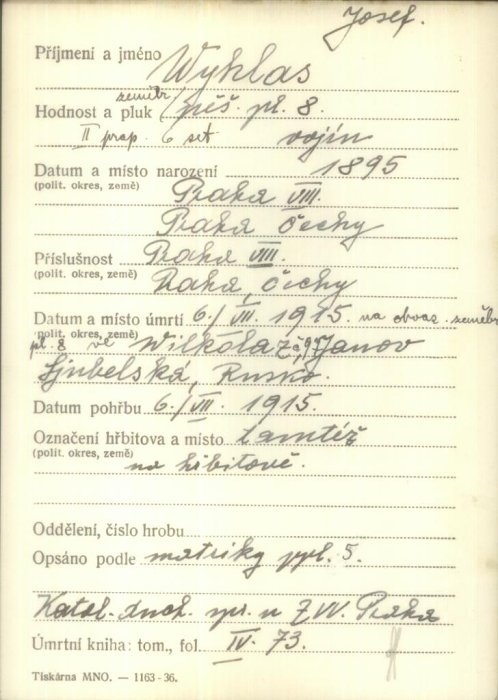 Josef.
Příjmení a jméno Wyhlas
zeměbr.
Hodnost a pluk pěš. pl. 8.
II prap. 6 set vojín
Datum a místo narození 1895
(polit. okres, země) Praha VIII.
Praha Čechy
Příslušnost Praha VIII.
(polit. okres, země) Praha, Čechy
Datum a místo úmrtí 6./VII. 1915. na obvaz. zeměbr
(polit. okres, země) pl. 8 ve Wilkolaz Janov
Ljubelská, Rusko.
Datum pohřbu 6./VII. 1915.
Označení hřbitova a místo tamtéž
(polit. okres, země) na hřbitově.
Oddělení, číslo hrobu
Opsáno podle matriky ppl. 5.
Katol. duch. spr. u ZVV. Praha
Úmrtní kniha: tom., fol. IV. 73.
Tiskárna MNO. — 1163-36.